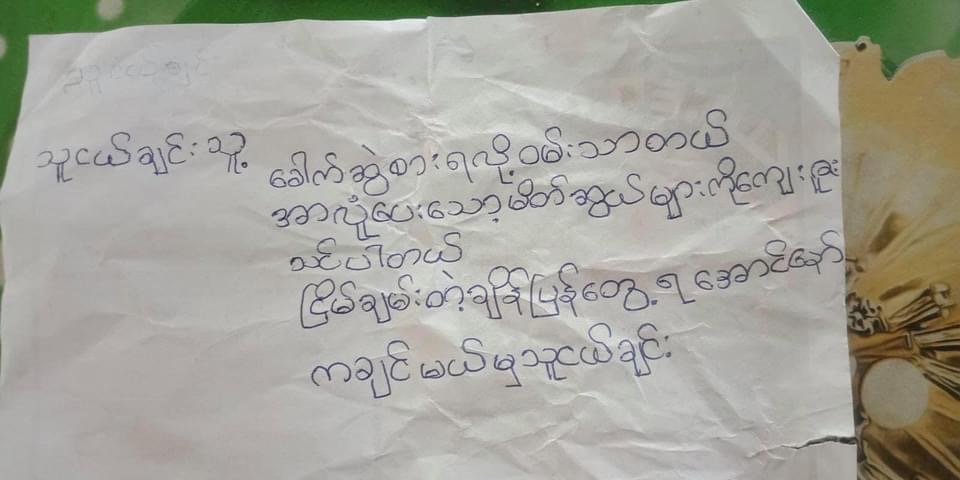 သူငယ်ချင်းသို့
ခေါက်ဆွဲစားရလို့ဝမ်းသာတယ်
အာလုံပေးသော့မိတ်ဆွယ်များကိုကျေးဇူး
သင်ပါတယ်
ငြိမ်ချမ်းတဲ့ချိန်ပြန်တွေ့ရအောင်နော်
ကချင်မယ်မှသူငယ်ချင်း